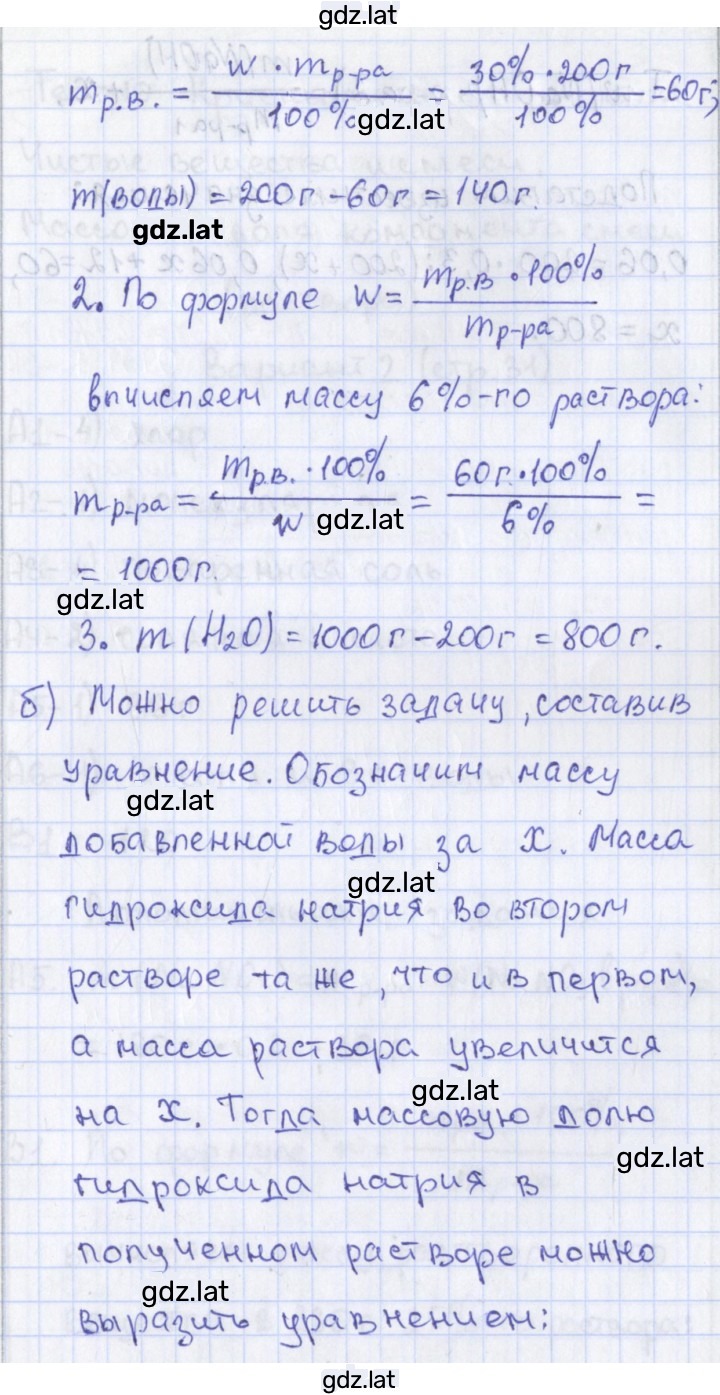 gdz.lat
mр.в. = w · mр-ра / 100% = 30% · 200г / 100% = 60г;
gdz.lat
m(воды) = 200г - 60г = 140г.
gdz.lat
2. По формуле w = mр.в · 100% / mр-ра
вычисляем массу 6%-го раствора:
mр-ра = mр.в. · 100% / w = 60г · 100% / 6% =
gdz.lat
= 1000г.
gdz.lat
3. m(H₂O) = 1000г - 200г = 800г.
б) Можно решить задачу, составив
уравнение. Обозначим массу
gdz.lat
добавленной воды за x. Масса
gdz.lat
гидроксида натрия во втором
растворе та же, что и в первом,
а масса раствора увеличится
gdz.lat
на x. Тогда массовую долю
gdz.lat
гидроксида натрия в
полученном растворе можно
gdz.lat
выразить уравнением:
gdz.lat